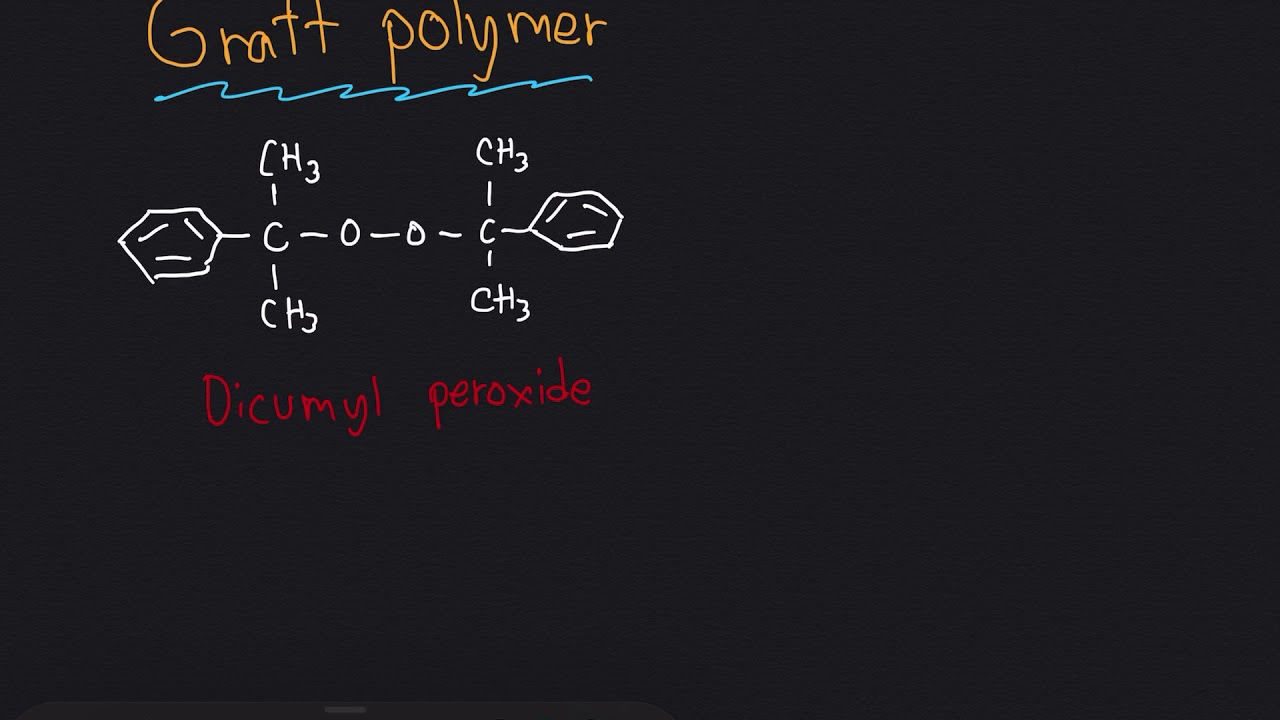 Graft polymer
CH3 CH3
C – O – O – C
CH3 CH3
Dicumyl peroxide